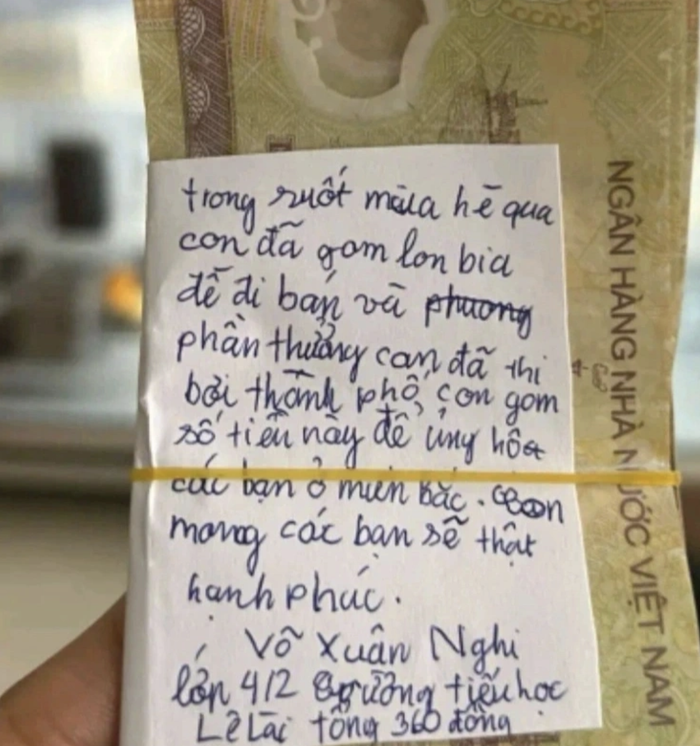 trong suốt mùa hè qua
con đã gom lon bia
để đi bán và phương
phần thưởng con đã thi
bơi thành phố, con gom
số tiền này để ủng hôa
các bạn ở miền Bắc. Con
mong các bạn sẽ thật
hạnh phúc.
Võ Xuân Nghi
lớp 4/2 trường tiểu học
Lê Lai tổng 360 đồng
NGÂN HÀNG NHÀ NƯỚC VIỆT NAM